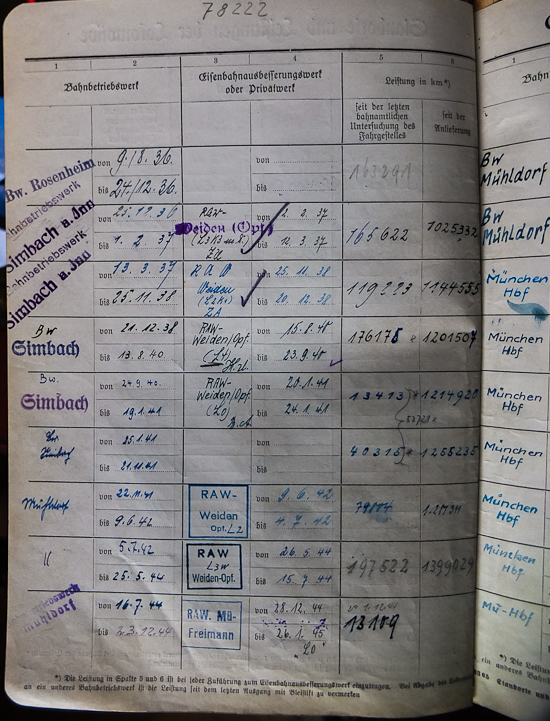 78222
1 2 3 4 5 6
Bahnbetriebswerk
Eisenbahnausbesserungswerk
oder Privatwerk
Leistung in km*)
seit der letzten
bahnamtlichen
Untersuchung des
Fahrgestelles
seit der
Anlieferung
Bw. Rosenheim
von 9/8. 36.
bis 24/12. 36.
von
bis
163291
Bahnbetriebswerk
Simbach a. Inn
25.12.36
bis 1. 2. 37
RAW-
Weiden (Opf)
2. 2. 37
bis 12. 3. 37
165622
1025332
Bahnbetriebswerk
Simbach a. Inn
von 13. 3. 37
bis 25. 11. 38
RAW
Weiden
von 25. 11. 38
bis 20. 12. 38
119223
1144555
Bw
Simbach
von 21. 12. 38
bis 13. 8. 40.
RAW-
Weiden/Opf.
(L4)
von 15. 8. 40
bis 23. 9. 40
176175
1201507
Bw.
Simbach
von 24. 9. 40.
bis 19.1.41
RAW-
Weiden/Opf
(L0)
von 20. 1. 41
bis 24. 1. 41
13413
1214920
von 25.1.41
bis 21.11.41
von
bis
40315
1255235
Mühldorf
von 22.11.41
bis 9.6.42
RAW-
Weiden
Opf. L2
von 9. 6. 42
bis 4. 7. 42
"
von 5.7.42
bis 25. 5. 44
RAW
L3W
Weiden-Opf.
von 26. 5. 44
bis 15. 7 44
197522
1399029
Mühldorf
von 16. 7. 44
bis 23. 12. 44
RAW. Mü-
Freimann
von 28. 12. 44
bis 26. 1. 45
"L0"
13109
*) Die Leistung in Spalte 5 und 6 ist bei jeder Zuführung zum Eisenbahnausbesserungswerk einzutragen. Bei Abgabe der
an ein anderes Bahnbetriebswerk ist die Leistung seit dem letzten Ausgang mit Bleistift zu vermerken
1
Bahn
Bw
Mühldorf
Bw
Mühldorf
München
Hbf
München
Hbf
München
Hbf
München
Hbf
München
Hbf
München
Hbf
Mü-Hbf
*) Die
ein anderes